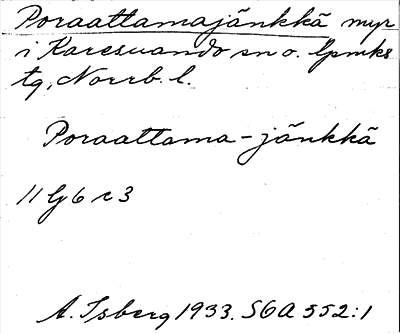 Poraattamajänkkä myr
i Karesuando sn o. lpmks
tg, Norrb. l.
Poraattama-jänkkä
11 G 6 c 3
A. Isberg 1933. SGA 552:1